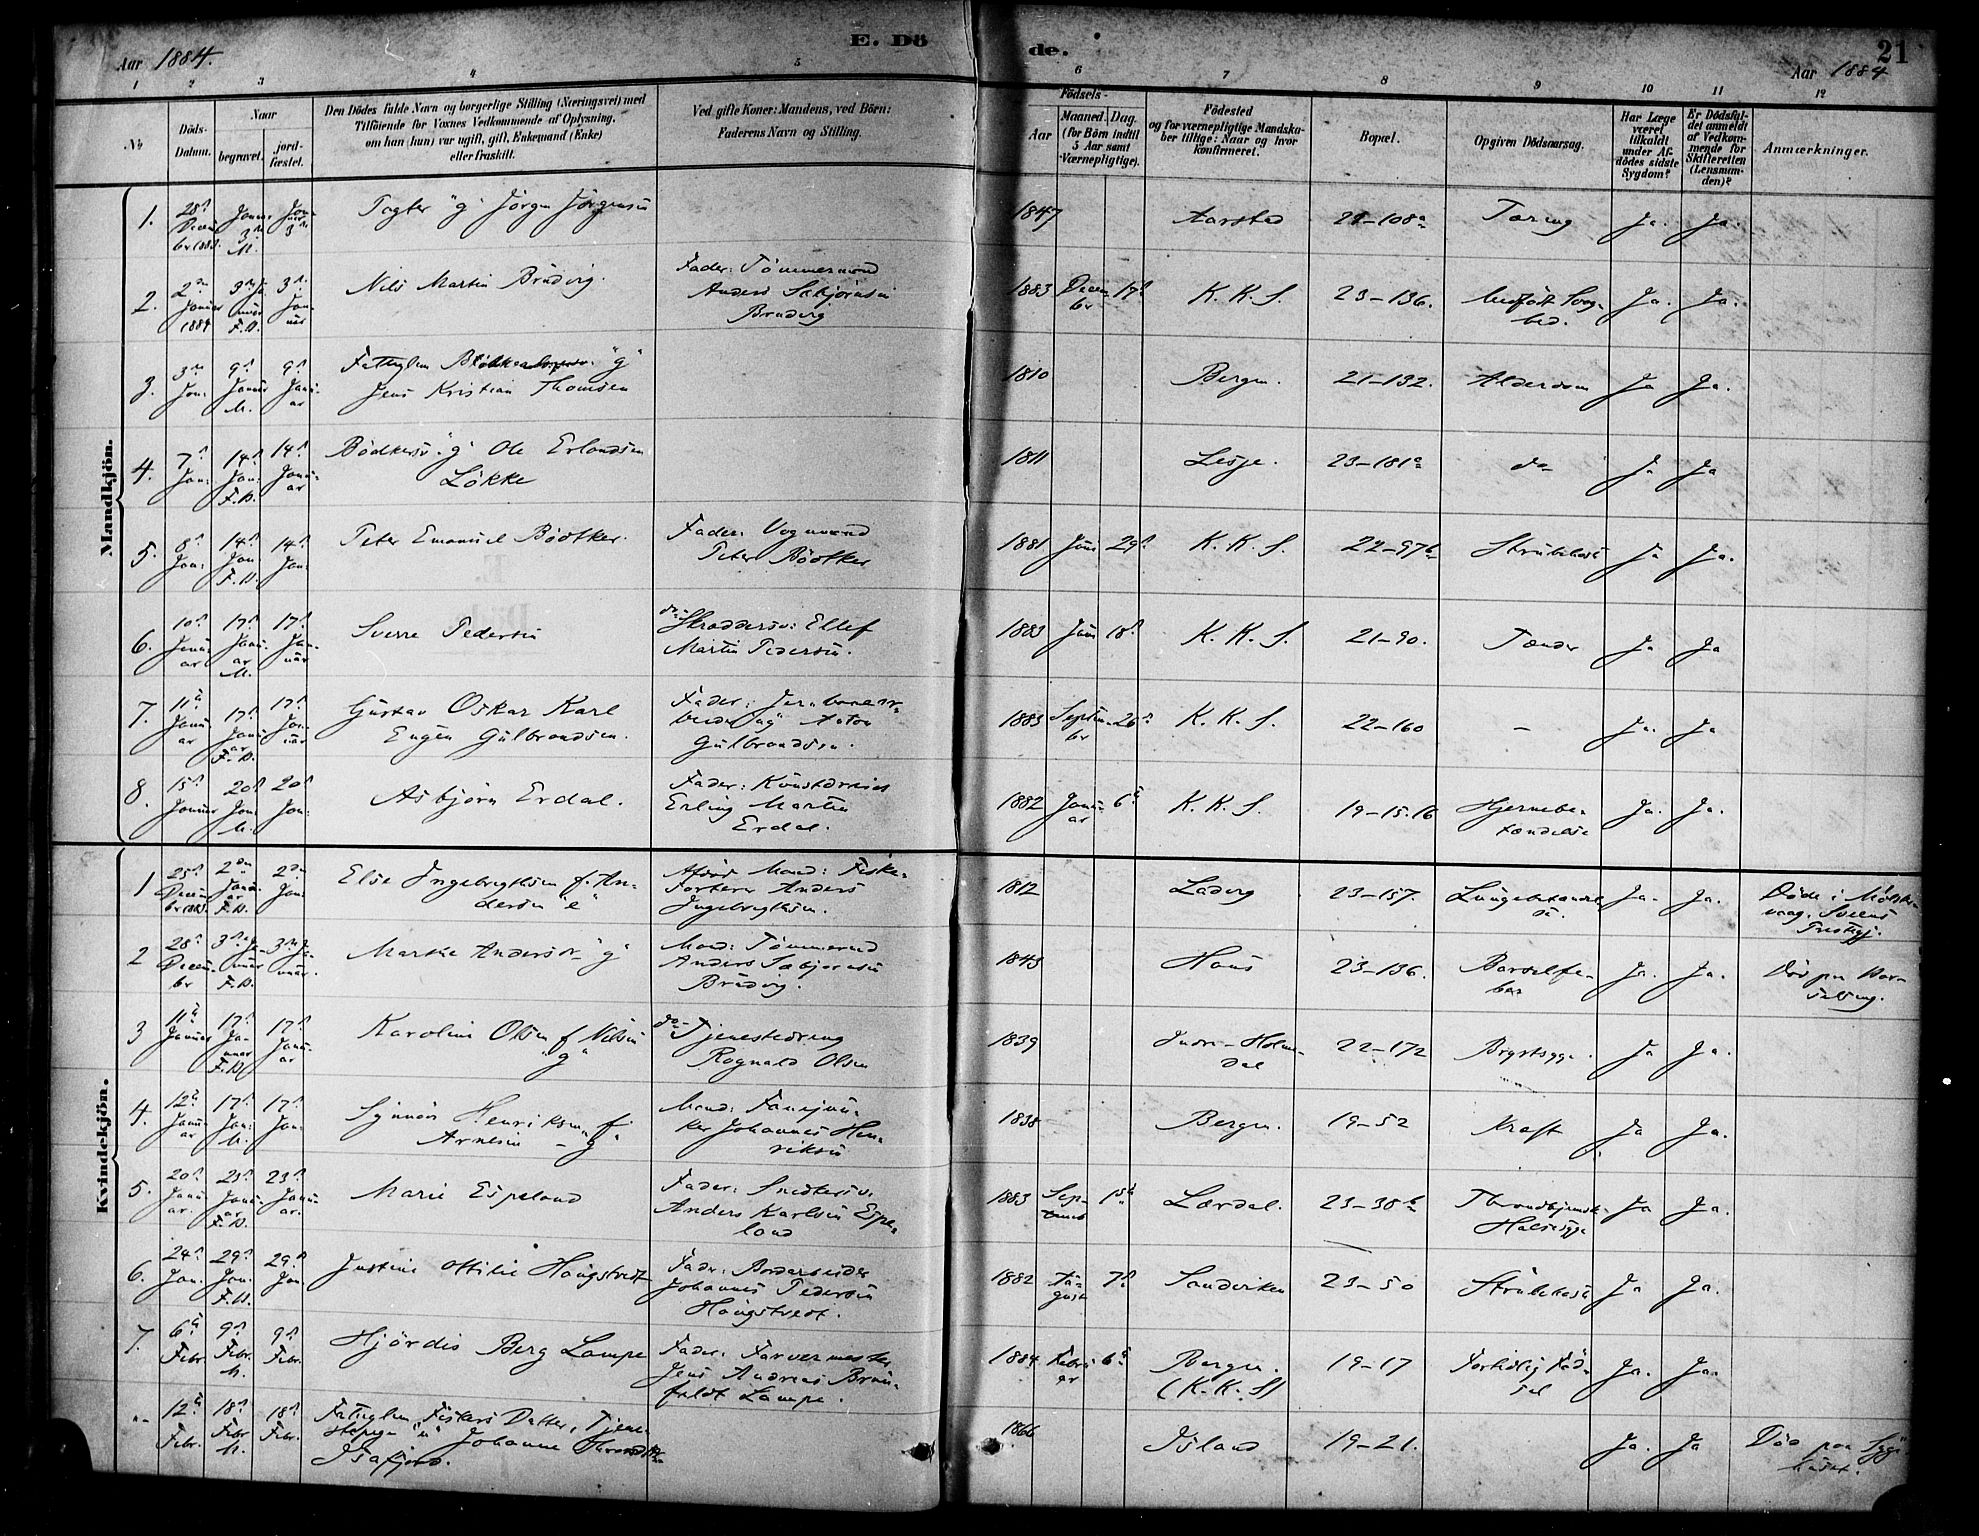 E. Döde.
21
Aar 1884.
Aar 1884
1 2 3 4 5 6 7 8 9 10 11 12
No
Döds-Datum.
Naar
begravet.
jord-fæstet.
Den Dödes fulde Navn og borgerlige Stilling (Næringsvei) med
Tilföiende for Voxnes Vedkommende af Oplysning,
om han (hun) var ugift, gift, Enkemand (Enke)
eller fraskilt.
Ved gifte Koner: Mandens, ved Börn:
Faderens Navn og Stilling.
Födsels-
Aar
Maaned. Dag.
(for Börn indtil
5 Aar samt
Værnepligtige).
Födested
og for værnepligtige Mandska-
ber tillige: Naar og hvor
konfirmeret.
Bopæl.
Opgiven Dödsaarsag.
Har Læge
været
tilkaldt
under Af-
dödes sidste
Sygdom?
Er Dödsfal-
det anmeldt
af Vedkom-
mende for
Skifteretten
(Lensman-
den)?
Anmærkninger.
Mandkjön.
1. 28 Decem br 1883. Januar 3 M. Januar 3 "g" Jörgen Jörgensen 1847 Aarstad 21-108a Tæring Ja. Ja.
2. 2den Januar 1884 3 Januar F.D. 3 Januar Nils Martin Brudvig. Fader: Tömmermand
Anders Sæbjörnsen
Brudvig 1883 Decem br 17 K. K. S. 23-136. Medfödt Svag-
hed. Ja. Ja.
3. 3 Jan: 9 Januar M. 9 Januar Fattiglem "g"
Jens Kristian Thomsen 1810 Bergen. 21-132. Alderdom Ja Ja.
4. 7 Jan: 14 Jan: F.D. 14 Januar Bödkersv. "g" Ole Erlandsen
Lökke 1811 Lesje. 23-181a do Ja Ja
5. 8 Jan: 14 Jan F.D. 14 Jan: Peter Emanuel Bödtker. Fader: Vognmand
Peter Bödtker 1881 Juni 29 K. K. S. 22-97b Strubehoste Ja Ja.
6. 10 Januar 17 Januar M. 17 Januar Sverre Pedersen do: Skræddersv: Ellef
Martin Pedersen. 1883 Juni 18 K. K. S. 21-90. Tænder Ja Ja
7. 11 Januar 17 Januar F.D. 17 Januar Gustav Oskar Karl
Eugen Gulbrandsen. Fader: Jernbanear-
beider "g" Anton
Gulbrandsen. 1883 Septem br 26 K. K. S. 22-160 - Ja. Ja
8. 15 Januar 20 Jan: M. 20 Jan: Asbjörn Erdal. Fader:
Erling Martin
Erdal. 1882 Januar 6 K. K. S. 19-15.16 Hjernebe-
tændelse Ja. Ja.
Kvindekjön.
1 25 Decem br 1883. 2den Januar F.D. 2den Jan: Else Ingebrigtsen f. An-
dersen "e" Afdöd Mand: Fiske-
Ingebrigtsen. Anders 1812 Ladvig 23-157. Lungebetændel
se. Ja. Ja. Döde i
Sveens
Prestegj.
2 28 Decem br 3 Januar F.D. 3 Januar. Marthe Andersen "g" Mand: Tömmermd
Anders Sæbjörnsen
Brudvig. 1843 Haus 23-136. Barselfe-
ber Ja. Ja. Död paa Bar-
selseng.
3 11 Januar 17 Januar F.D. 17 Januar Karoline Olsen f. Nilsen
"g" do: Tjenestedreng
Rognald Olsen 1839 Indre-Holme-
dal 22-172 Brystsyge. Ja Ja.
4. 12 Januar 17 Jan: M. 17 Jan: Synnöv Henriksen f.
Arnesen - "g" Mand:
Johannes Hen-
riksen 1838 Bergen. 19-52 Kræft Ja Ja.
5. 20 Januar. 23 Januar F.D. 23 Januar. Marie Espeland Fader: Snedkersv.
Anders Karlsen Espe-
land 1883 September 15 Lærdal. 23-38b Throndhjemsk
Halssyge Ja Ja.
6. 24 Jan. 29 Jan. F.D. 29 Jan Justine Ottilie Haugstvedt Fader: Bordarbeider
Johannes Pedersen
Haugstvedt. 1882 August 7 Sandviken 23-50 Strubehoste Ja Ja.
7. 6 Febr. 9 Febr. M. 9 Febr. Hjördis Berg Lampe Fader: Farvermester
Jens Andreas Brun-
feldt Lampe. 1884 Februar 6 Bergen.
(K. K. S) 19-17 Fortidlig Föd-
sel Ja. Ja.
"- 12 Febr. 18 Febr M. 18 Febr. Fattiglem, Fiskers Datter, Tjene-
stepige "u" Johanne
Isafjord. 1866 Island 19-21. Ja. Ja Död paa Syge-
huset.